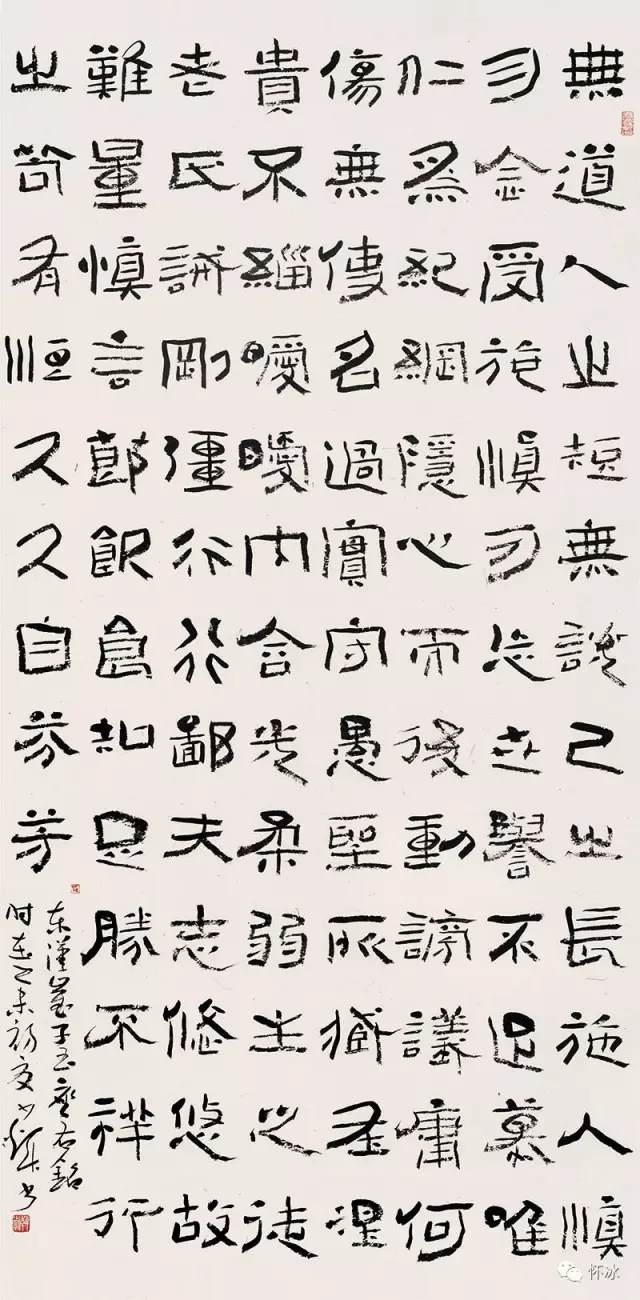 無道人之短無說己之長施人慎
勿念受施慎勿忘世譽不足慕唯
仁為紀綱隱心而後動謗議庸何
傷無使名過實守愚聖所臧在涅
貴不緇曖曖內含光柔弱生之徒
老氏誡剛彊行行鄙夫志悠悠故
難量慎言節飲食知足勝不祥行
之苟有恒久久自芬芳
东漢崔子玉座右銘
时在乙未初夏书
怀冰